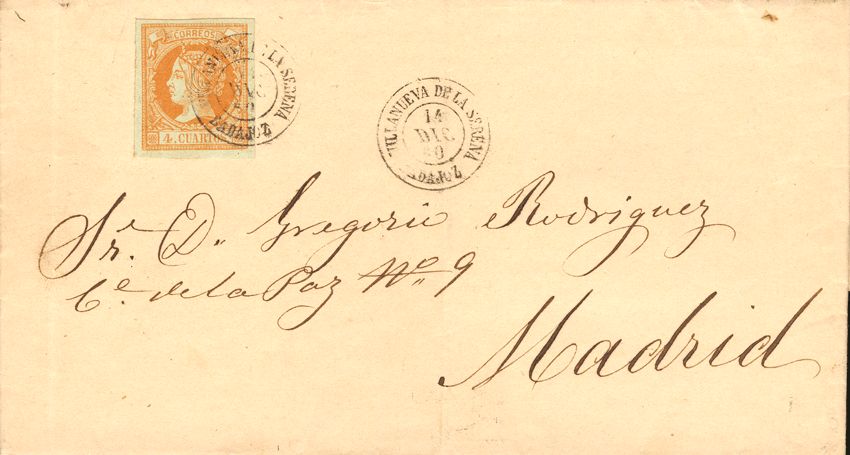 CORREOS
4. CUART
LA SERENA
DIC
BADAJOZ
VILLANUEVA DE LA SERENA
14
DIC.
60
BADAJOZ
Sr. D. Gregorio Rodriguez
Ce. de la Paz No. 9
Madrid